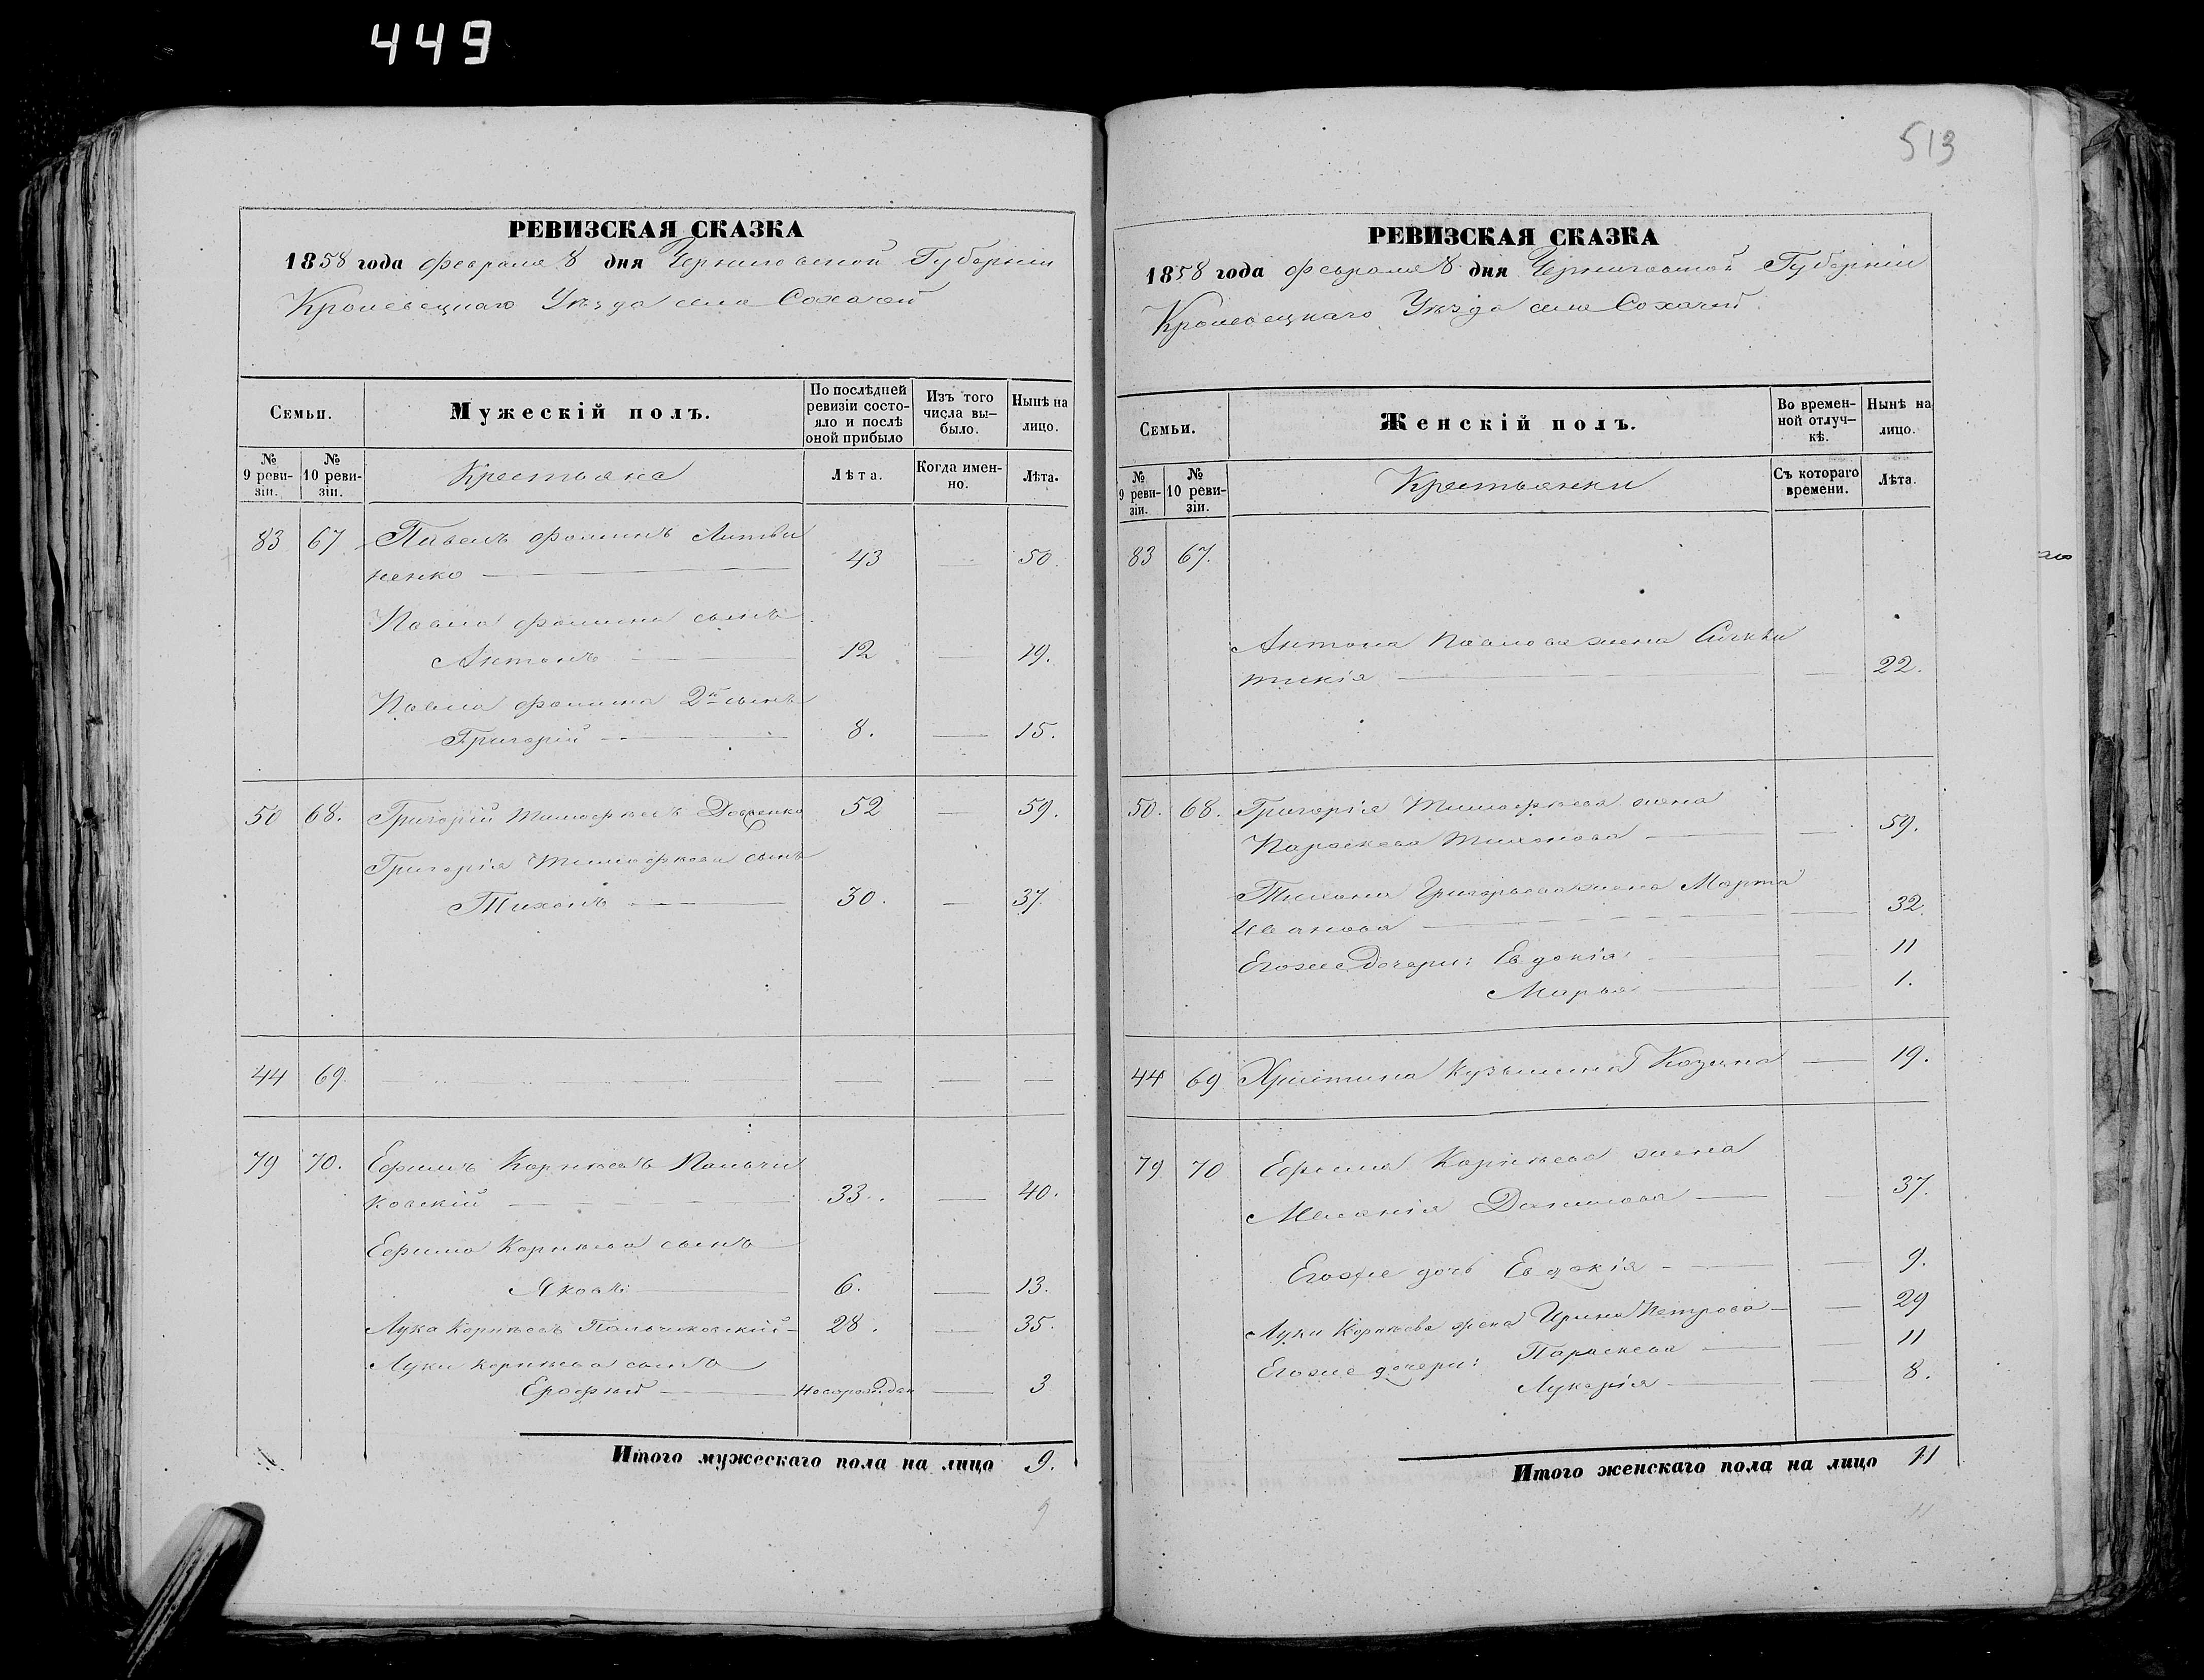 449
513
РЕВИЗСКАЯ СКАЗКА
1858 года февраля 8 дня Черниговской Губерніи
Кролевецкаго Уѣзда села Сохачей
Семьи.
Мужескій полъ.
По послѣдней ревизіи состояло и послѣ оной прибыло
Изъ того числа выбыло.
Нынѣ на лицо.
№ 9 ревизіи.
№ 10 ревизіи.
Крестьяне
Лѣта.
Когда именно.
Лѣта.
83 67 Павелъ Фоминъ Литви
ненко — 43 — 50.
Павла Фомина сынъ
Антонъ — 12 — 19.
Павла Фомина 2й сынъ
Григорій — 8. — 15.
50 68. Григорій Тимофеевъ Довженко 52 — 59.
Григорія Тимофеева сынъ
Тихонъ — 30. — 37.
44 69. — — — —
79 70. Ефимъ Корнѣевъ Пальчи
ковскій — 33. — 40.
Ефима Корнѣева сынъ
Яковъ — 6. — 13.
Лука Корнѣевъ Пальчиковскій — 28. — 35.
Луки Корнѣева сынъ
Ерофѣй — новорожден — 3
Итого мужескаго пола на лицо 9.
9
РЕВИЗСКАЯ СКАЗКА
1858 года февраля 8 дня Черниговской Губерніи
Кролевецкаго Уѣзда села Сохачей
Семьи.
Женскій полъ.
Во временной отлучкѣ.
Нынѣ на лицо.
№ 9 ревизіи.
№ 10 ревизіи.
Крестьянки
Съ котораго времени.
Лѣта.
83 67.
Антона Павлова жена
— — 22.
50. 68. Григорія Тимофѣева жена
Параскева Тихонова — — 59.
Тихона Григорьева жена Марта
Иванова — — 32.
Егоже дочери: Евдокія — — 11
Марья — — 1.
44 69 Христина Кузьмина — 19.
79 70 Ефима Корнѣева жена
Меланія Данилова — — 37.
Егоже дочь Евдокія — — 9.
Луки Корнѣева жена Ирина Петрова — — 29
Егоже дочери: Параскева — — 11
Лукерія — — 8.
Итого женскаго пола на лицо 11
11